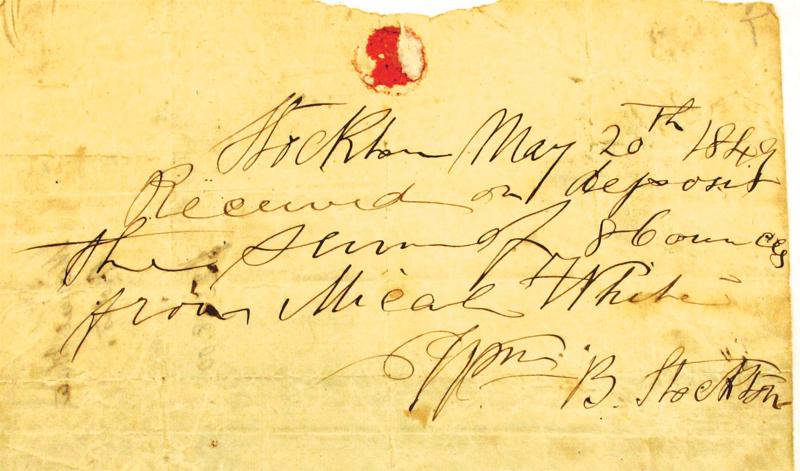 Stockton May 20th 1849
Received on deposit
the sum of 86 ounces
from Micah White
Wm B. Stockton